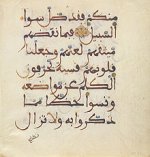 منكم فقد ضل سوا
السبيل فبما نقضهم
ميثقهم لعنهم وجعلنا
قلوبهم قسية يحرفون
الكلم عن مواضعه
ونسوا حظا مما
ذكروا به ولا تزال